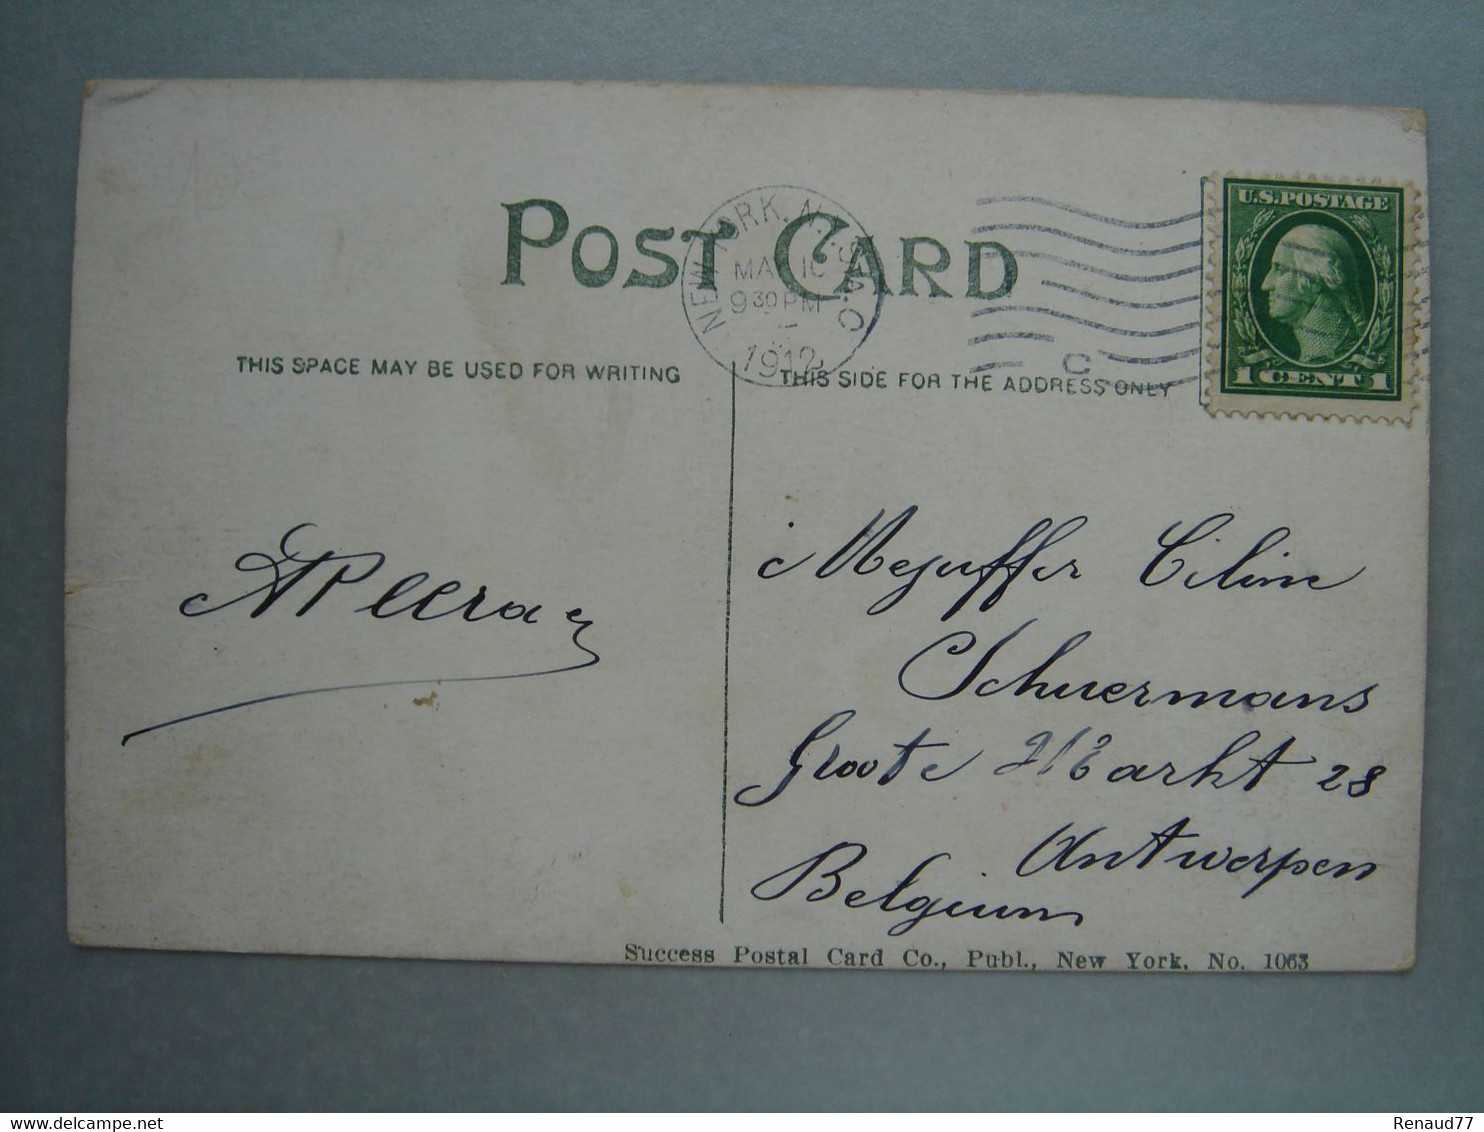 POST CARD
NEW YORK, N.Y. STA. C
MA 10
9 30 PM
1912
C
U.S. POSTAGE
1 CENT 1
THIS SPACE MAY BE USED FOR WRITING
THIS SIDE FOR THE ADDRESS ONLY
Mejuffer Celine
Schuermans
Groote Markt 28
Antwerpen
Belgium
Success Postal Card Co., Publ., New York, No. 1063
www.delcampe.net
Renaud77